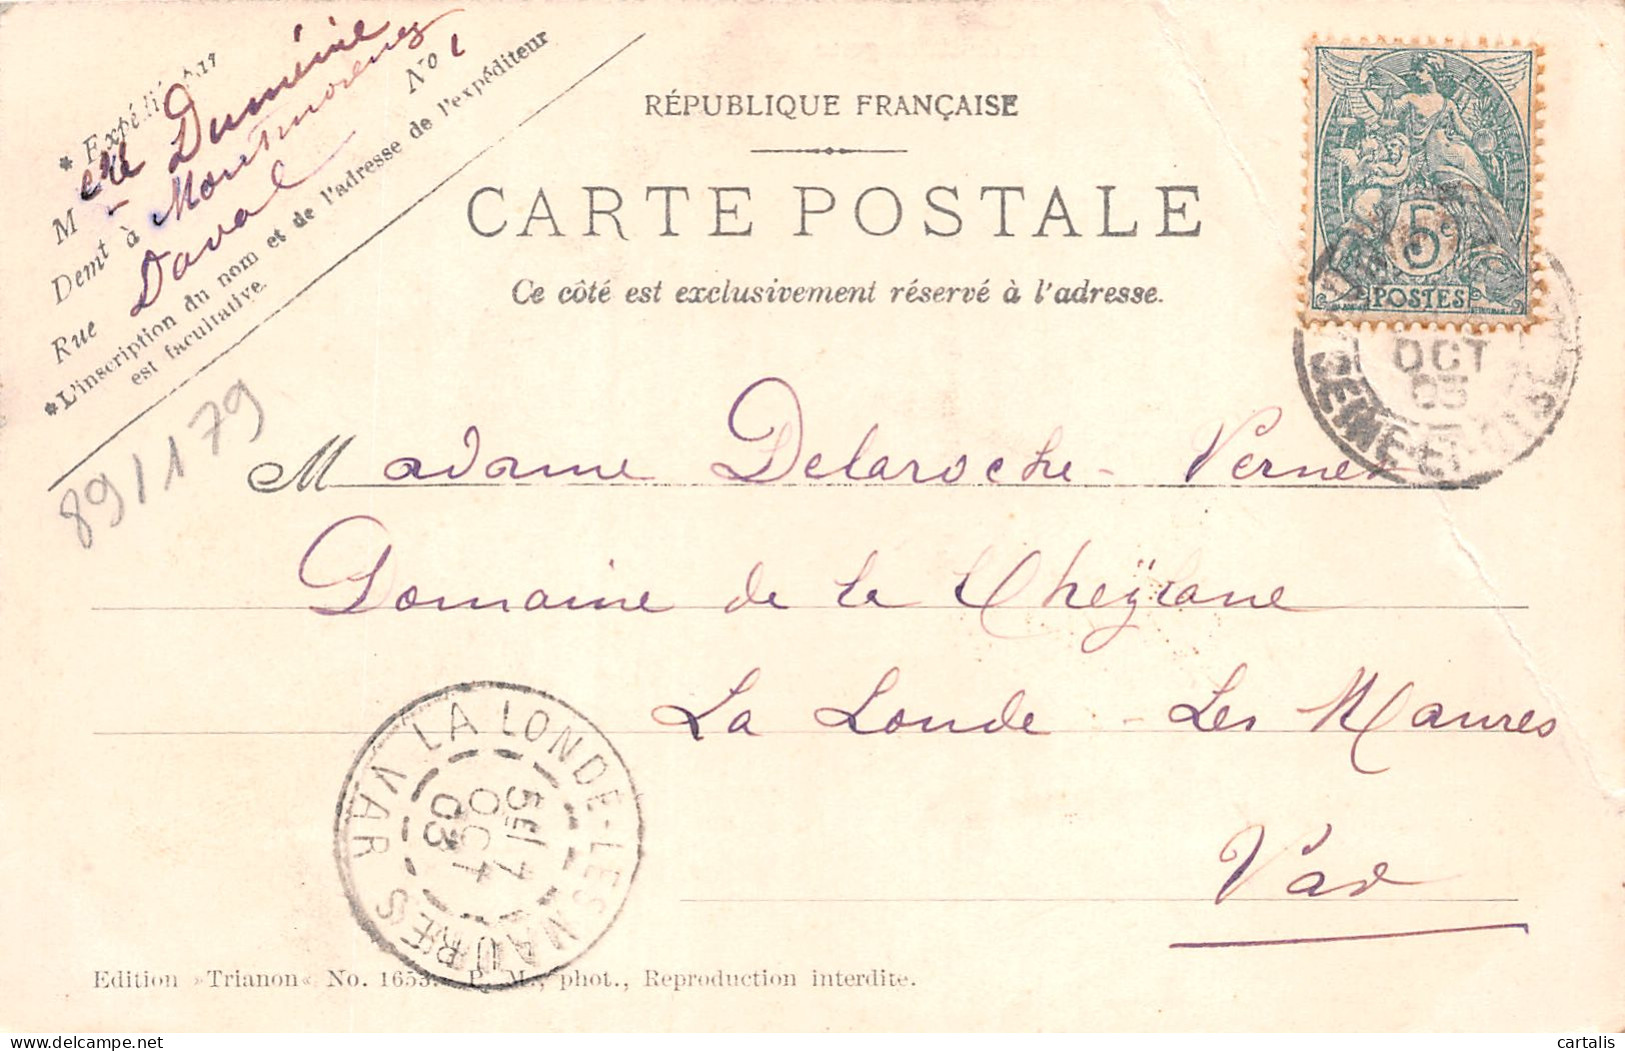 * Expéditeur
M elle Duménil
Demt à Montmorency
Rue Daval No 1
*L'inscription du nom et de l'adresse de l'expéditeur
est facultative.
RÉPUBLIQUE FRANÇAISE
CARTE POSTALE
Ce côté est exclusivement réservé à l'adresse.
5c
POSTES
OCT
SEINE-ET-OISE
89/179
Madame Delaroche-Vernet
Domaine de la Cheÿlane
La Londe-Les Maures
Var
LA LONDE-LES MAURES
VAR
5E/7
OCT
03
Edition »Trianon« No. 1653. P. M., phot., Reproduction interdite.
cartalis